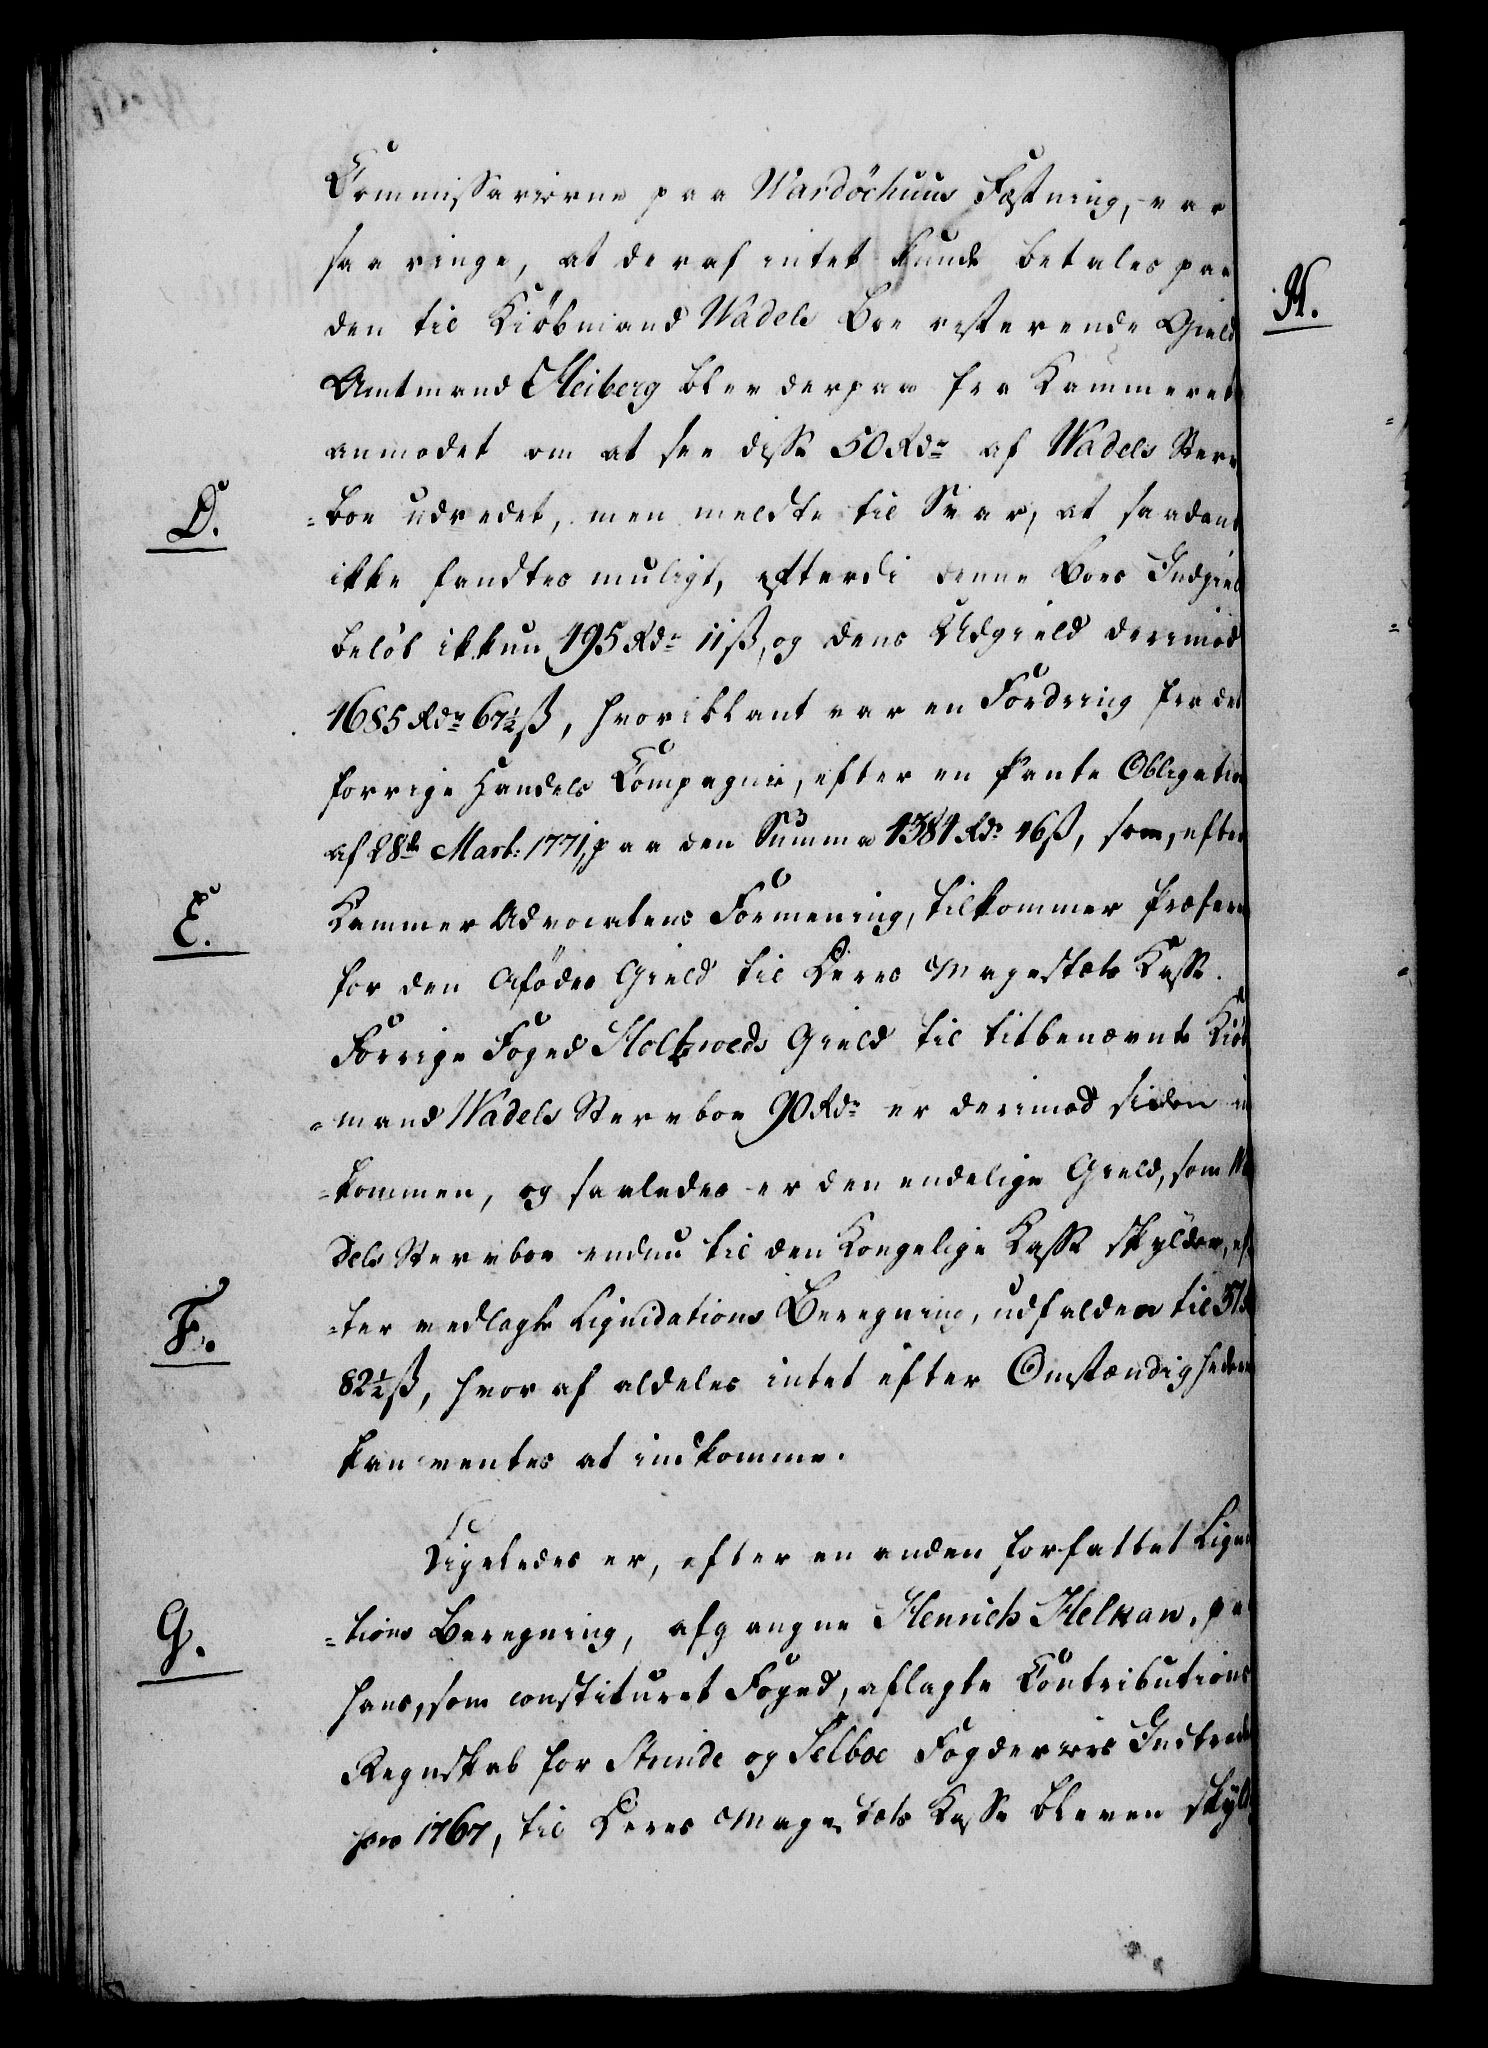 Commissarierne paa Wardöehuus Fæstning, var
saa ringe, at deraf intet kunde betales paa
den til Kiöbmand Wadels Boe resterende Gield
Amtmand Heiberg blev derpaa fra Kammeret
anmodet om at see disse 50 Rdr af Wadels Sterv
D.
=boe udredet, men meldte til Svar, at saadant
ikke fandtes muligt, efterdi denne Boes Indgield
belöb ikkun 495 Rdr 11 ß, og dens Udgield derimod
4685 Rdr 67½ ß, hvoriblant var en Fordring fra det
forrige Handels Compagnie, efter en Pante Obligation
af 28de Mart: 1771, paa den Summa 4384 Rdr 46 ß, som, efter
E.
Kammer Advocatens Formening, tilkommer Præference
for den Afödes Gield til Deres Majestæts Kasse.
Forrige Foged Holtzweds Gield til titbenævnte Kiöb
=mand Wadels Stervboe 90 Rdr er derimod siden ind
=kommen, og saaledes er den endelige Gield, som Wa
dels Stervboe endnu til den Kongelige Kasse skylder, ef
F.
=ter vedlagte Liquidations Beregning, udfalden til
82½ ß, hvoraf aldeles intet efter Omstændighederne
kan ventes at indkomme.
Ligeledes er, efter en anden forfattet Liqvida
G.
=tions Beregning, afgangne Henrich Helkan, paa
hans, som constitueret Foged, aflagte Contributions
Regnskab for Strinde og Selboe Fogderies Indtræde
pro 1767, til Deres Majestæts Kasse bleven skyldig
H.